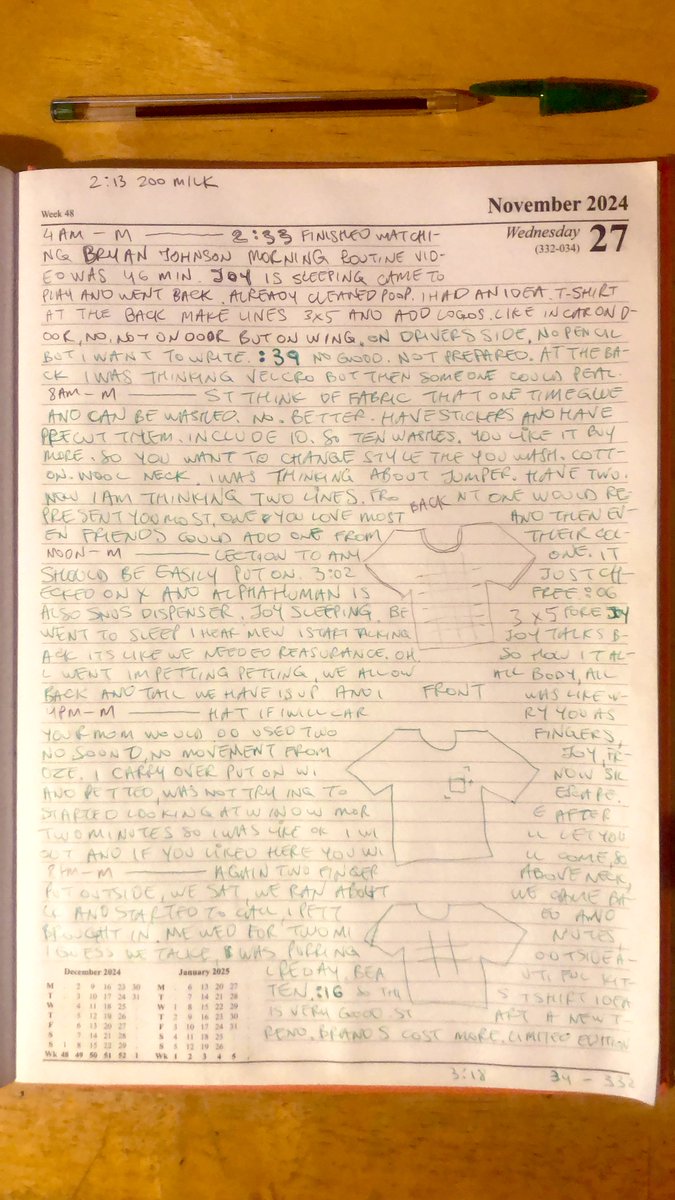 2:13 200 MILK
Week 48
November 2024
Wednesday 27
(332-034)
4AM - M ——— 2:33 FINISHED WATCHI-
NG BRYAN JOHNSON MORNING ROUTINE VID-
EO WAS 46 MIN. JOY IS SLEEPING CAME TO
PLAY AND WENT BACK. ALREADY CLEANED POOP. I HAD AN IDEA. T-SHIRT
AT THE BACK MAKE LINES 3X5 AND ADD LOGOS. LIKE IN CAR ON D-
OOR, NO, NOT ON DOOR BUT ON WING, ON DRIVERS SIDE, NO PENCIL
BUT I WANT TO WRITE. :39 NO GOOD. NOT PREPARED. AT THE BA-
CK I WAS THINKING VELCRO BUT THEN SOMEONE COULD PEAL.
8AM - M ——— ST THINK OF FABRIC THAT ONE TIME GLUE
AND CAN BE WASHED. NO. BETTER. HAVE STICKERS AND HAVE
PRECUT THEM. INCLUDE 10. SO TEN WASHES. YOU LIKE IT BUY
MORE. SO YOU WANT TO CHANGE STYLE THE YOU WASH. COTT-
ON. WOOL NECK. I WAS THINKING ABOUT JUMPER. HAVE TWO.
NOW I AM THINKING TWO LINES. FRO BACK NT ONE WOULD RE-
PRESENT YOU MOST, ONE YOU LOVE MOST AND THEN EV-
EN FRIENDS COULD ADD ONE FROM THEIR COL-
NOON - M ——— LECTION TO ANY ONE. IT
SHOULD BE EASILY PUT ON. 3:02 JUST CH-
ECKED ON X AND ALPHAHUMAN IS FREE :06
ALSO SNUS DISPENSER. JOY SLEEPING. BE 3x5 FORE JOY
WENT TO SLEEP I HEAR MEW I START TALKING JOY TALKS B-
ACK ITS LIKE WE NEEDED REASURANCE. OH. SO HOW IT AL-
L WENT IM PETTING PETTING, WE ALLOW ALL BODY, ALL
BACK AND TAIL WE HAVE IS UP AND I FRONT WAS LIKE W-
4PM - M ——— HAT IF I WILL CAR RY YOU AS
YOUR MOM WOULD DO USED TWO FINGERS,
NO SOUND, NO MOVEMENT FROM JOY, FR-
OZE. I CARRY OVER PUT ON WI NOW SIL
AND PETTED, WAS NOT TRY ING TO ESCAPE.
STARTED LOOKING AT WINOW MOR E AFTER
TWO MINUTES SO I WAS LIKE OK I WI LL LET YOU
OUT AND IF YOU LIKED HERE YOU WI LL COME, SO
8PM - M ——— AGAIN TWO FINGER ABOVE NECK,
PUT OUTSIDE, WE SAT, WE RAN ABOUT WE CAME BA-
CK AND STARTED TO CALL, I PETT ED AND
BROUGHT IN. ME WED FOR TWO MI NUTES,
I GUESS WE TALKE, WAS PURRING OUTSIDE A-
LREDAY, BEA UTIFUL KIT-
TEN. :16 SO THI S TSHIRT IDEA
IS VERY GOOD ST ART A NEW T-
REND. BRANDS COST MORE. LIMITED EDITION
December 2024
M 2 9 16 23 30
T 3 10 17 24 31
W 4 11 18 25
T 5 12 19 26
F 6 13 20 27
S 7 14 21 28
S 1 8 15 22 29
Wk 48 49 50 51 52 1
January 2025
M 6 13 20 27
T 7 14 21 28
W 1 8 15 22 29
T 2 9 16 23 30
F 3 10 17 24 31
S 4 11 18 25
S 5 12 19 26
Wk 1 2 3 4 5
3:18 34 - 332